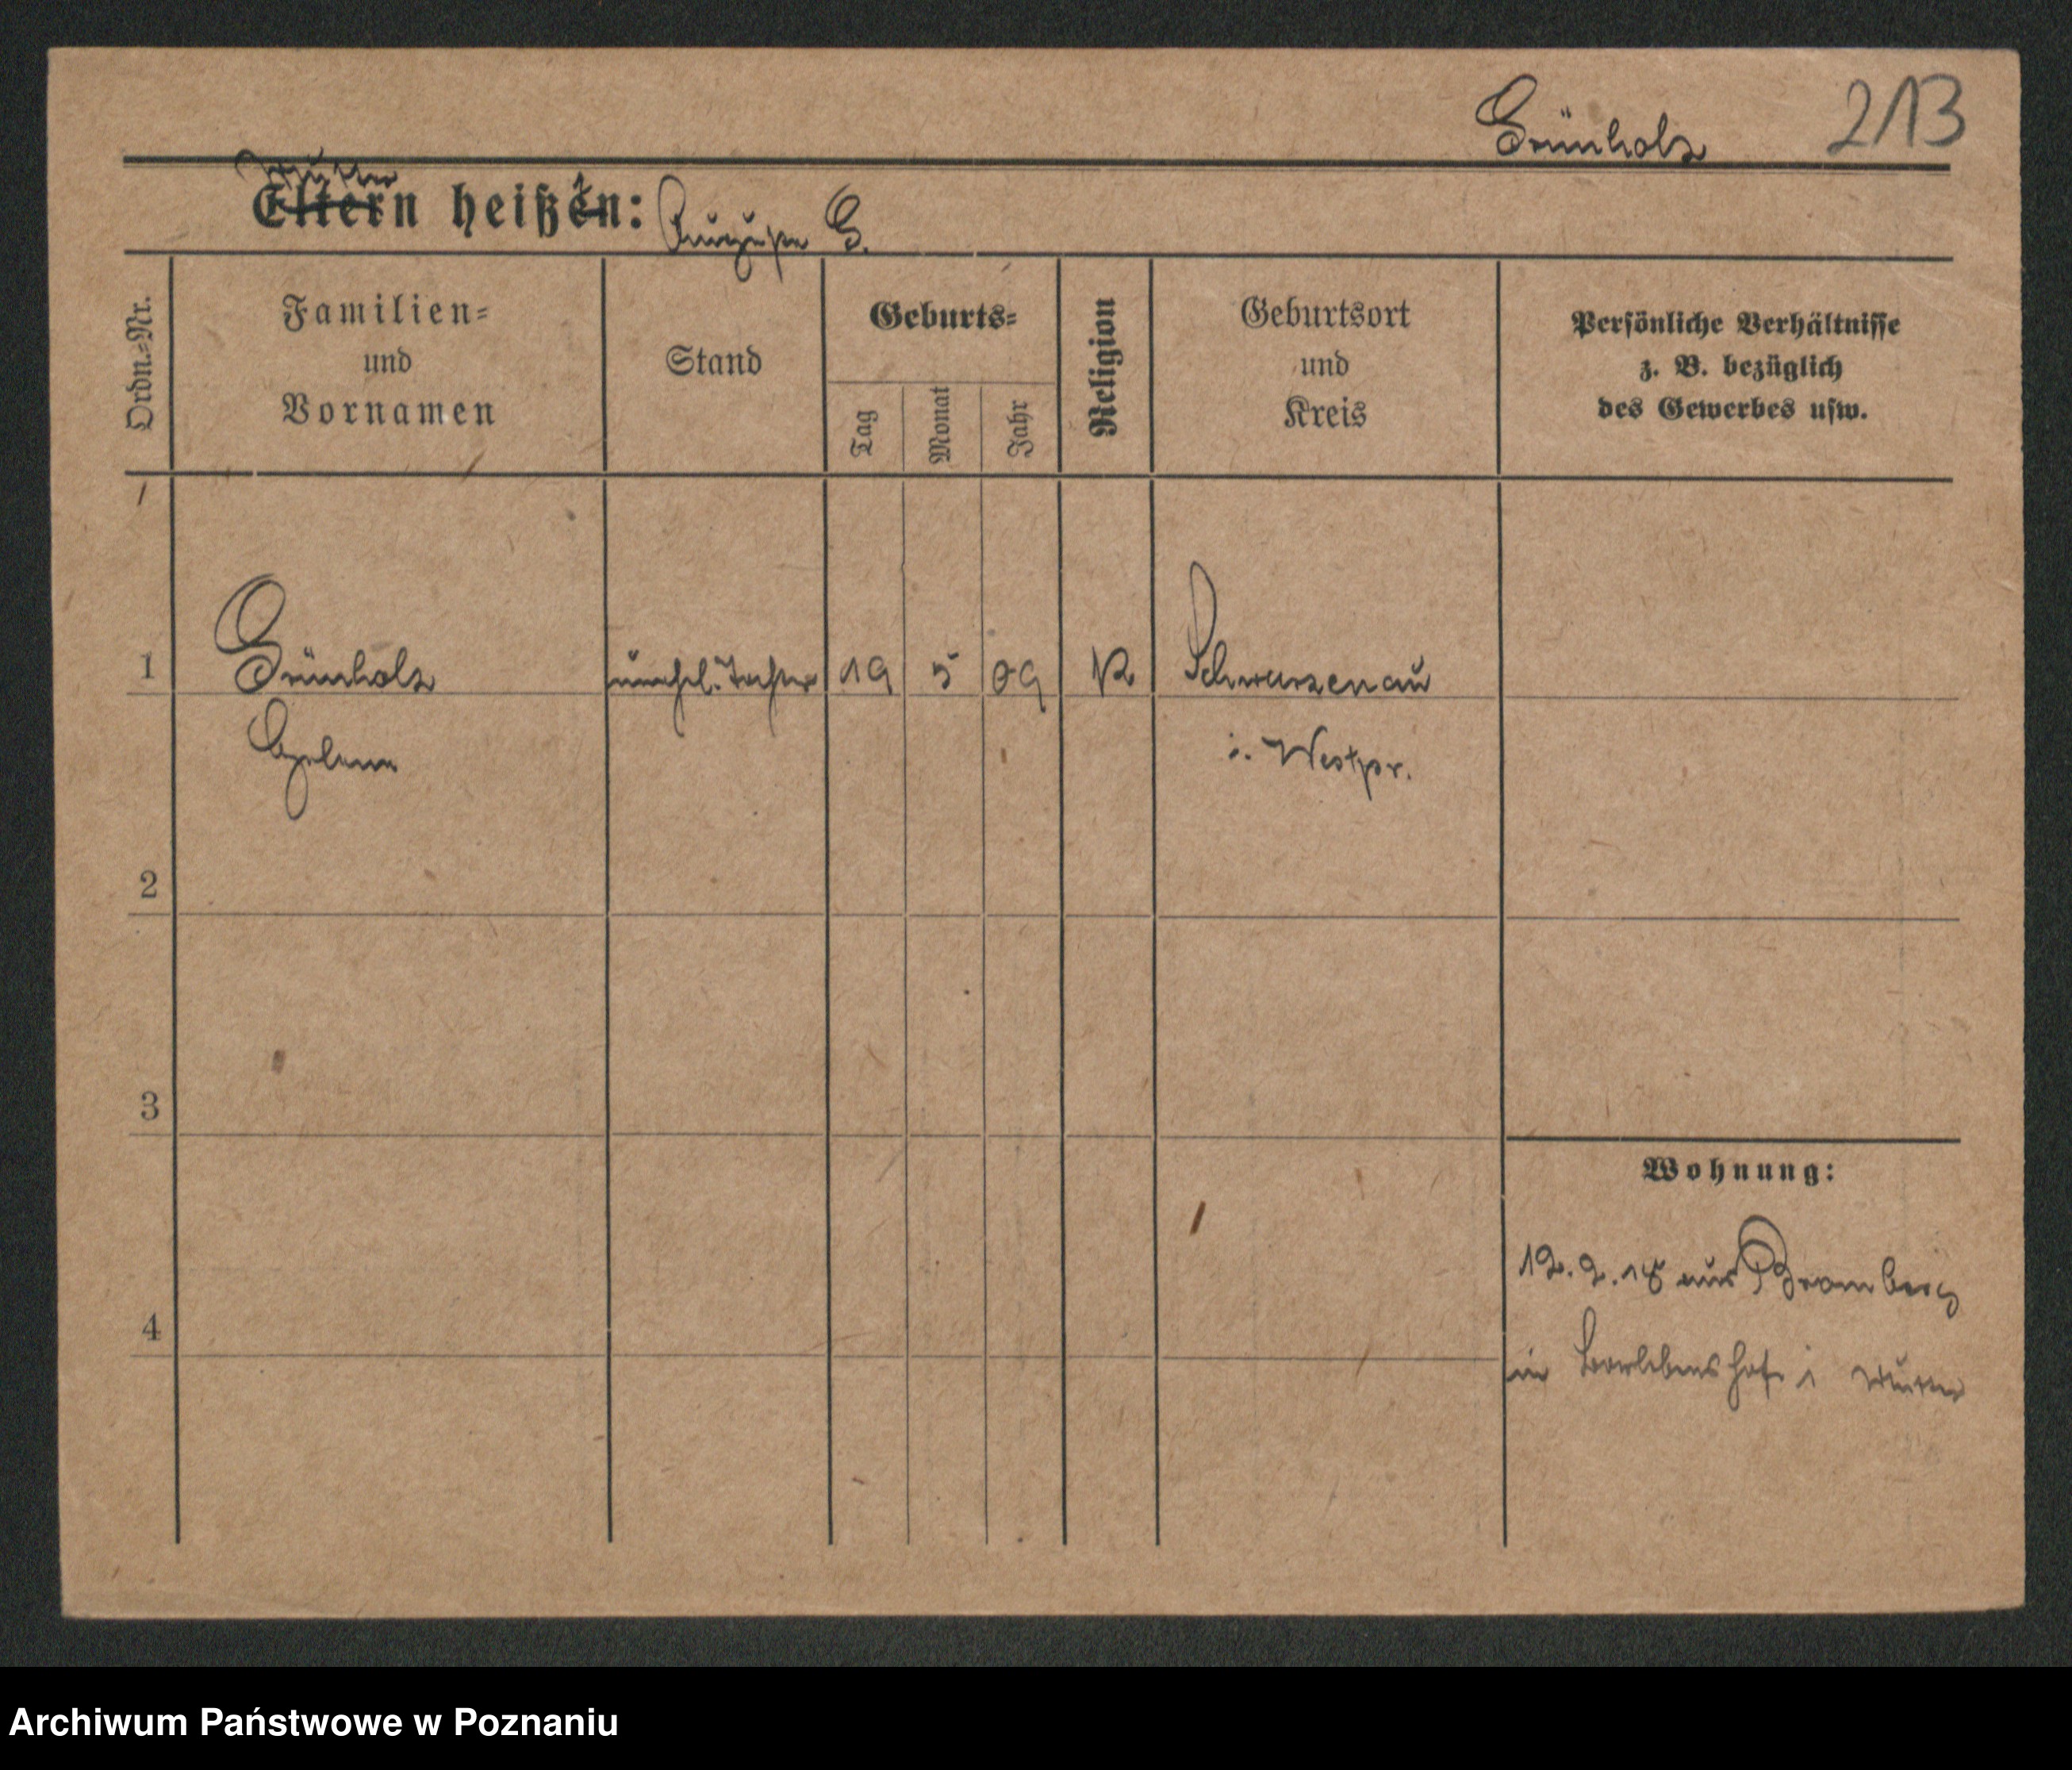 Grünholz 213
Mutter
Eltern heißen: Auguste G.
Ordn.=Nr.
Familien=
und
Vornamen
Stand
Geburts=
Tag
Monat
Jahr
Religion
Geburtsort
und
Kreis
Persönliche Verhältnisse
z. B. bezüglich
des Gewerbes usw.
1 Grünholz unehel. Tochter 19 5 09 K Schwarzenau
Helene i. Westpr.
2
3
Wohnung:
12. 2. 18 aus Bromberg
in
4
Archiwum Państwowe w Poznaniu